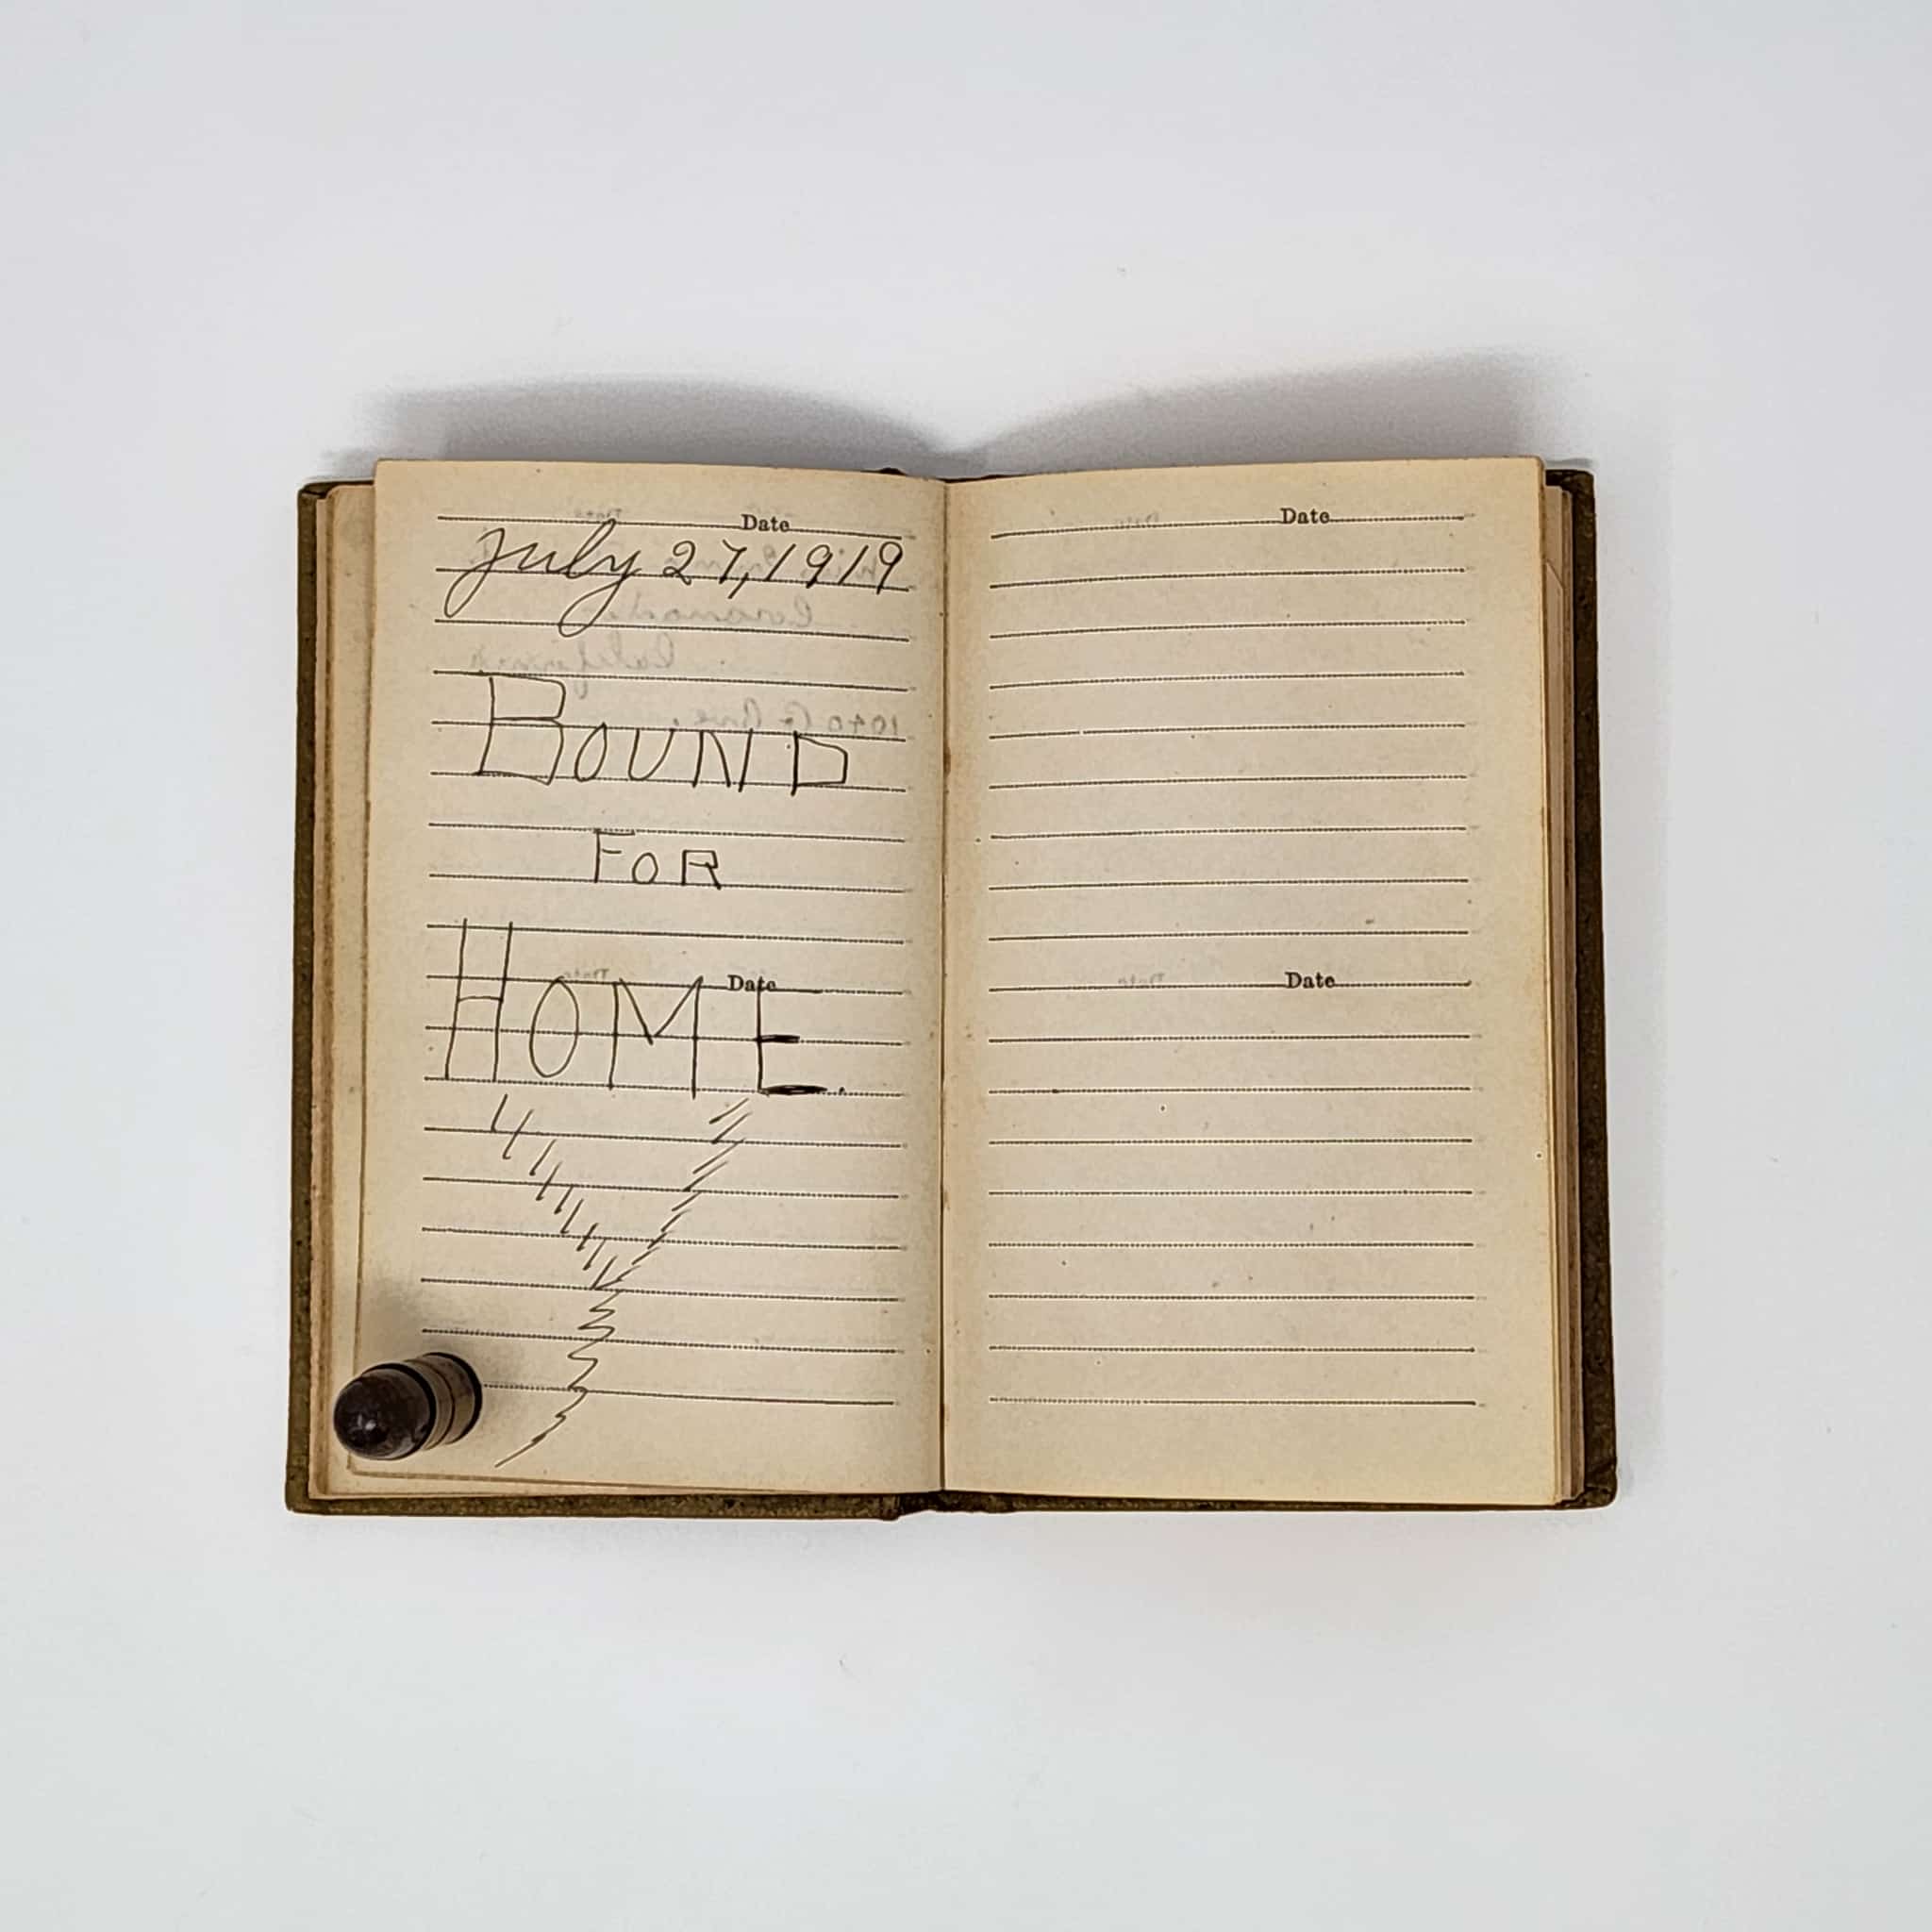 Date
July 27, 1919
BOUND
FOR
HOME.
Date
Date
Date